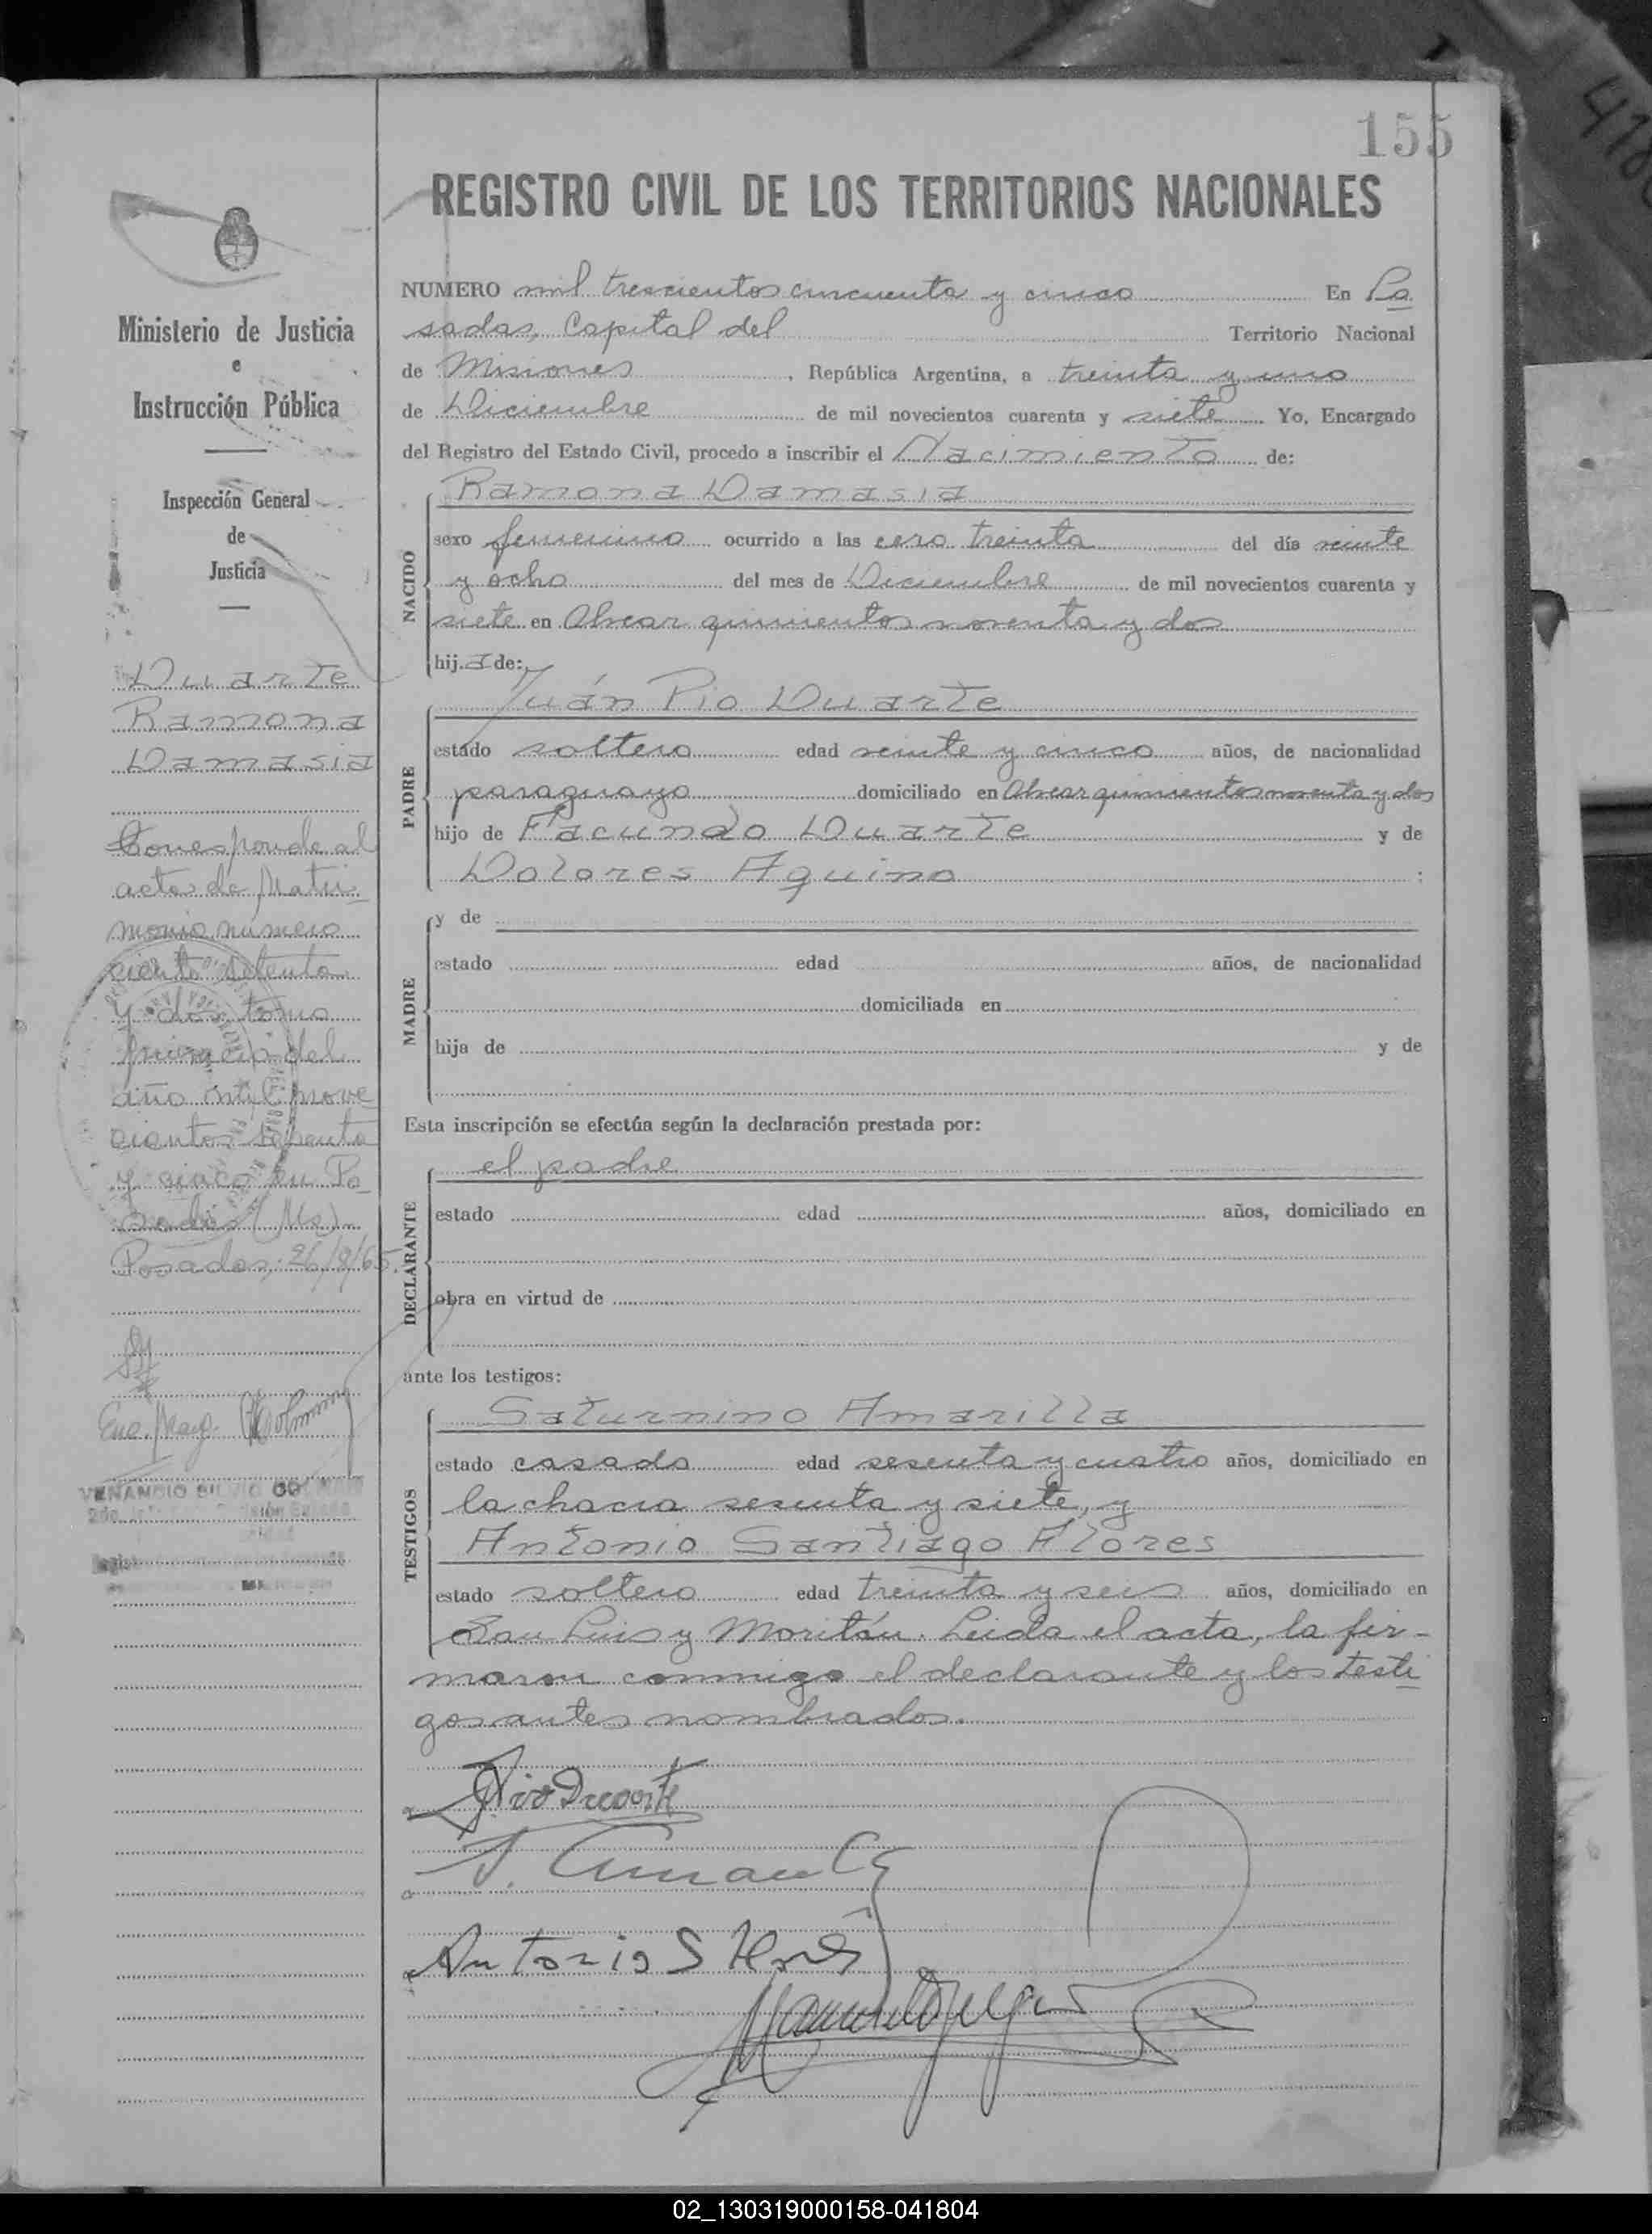 155
REGISTRO CIVIL DE LOS TERRITORIOS NACIONALES
Ministerio de Justicia
e
Instrucción Pública
Inspección General
de
Justicia
Duarte
Ramona
Damasia
Corresponde al
acta de Matri-
monio número
ciento setenta
y dos tomo
primero del
año mil nove
cientos sesenta
y cinco en Po-
sadas (Ms).
Posadas, 26/8/65.
VENANCIO
NUMERO mil trescientos cincuenta y cinco En Po
sadas, Capital del Territorio Nacional
de Misiones, República Argentina, a treinta y uno
de Diciembre de mil novecientos cuarenta y siete Yo, Encargado
del Registro del Estado Civil, procedo a inscribir el Nacimiento de:
Ramona Damasia
NACIDO
sexo femenino ocurrido a las cero treinta del día veinte
y ocho del mes de Diciembre de mil novecientos cuarenta y
siete en Alvear quinientos noventa y dos
hija de:
Juán Pio Duarte
PADRE
estado soltero edad veinte y cinco años, de nacionalidad
paraguayo domiciliado en Alvear quinientos noventa y dos
hijo de Facundo Duarte y de
Dolores Aquino :
MADRE
y de
estado edad años, de nacionalidad
domiciliada en
hija de y de
Esta inscripción se efectúa según la declaración prestada por:
el padre
DECLARANTE
estado edad años, domiciliado en
obra en virtud de
ante los testigos:
Saturnino Amarilla
TESTIGOS
estado casado edad sesenta y cuatro años, domiciliado en
la chacra sesenta y siete, y
Antonio Santiago Flores
estado soltero edad treinta y seis años, domiciliado en
San Luis y Moritán. Leída el acta, la fir-
maron conmigo el declarante y los testi
gos antes nombrados.
Pio Duarte
Antonio S Flores
02_130319000158-041804